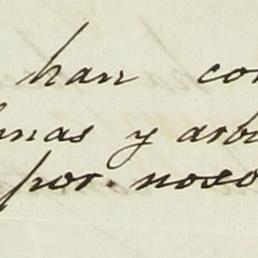 han con
unas y arb
por. noso